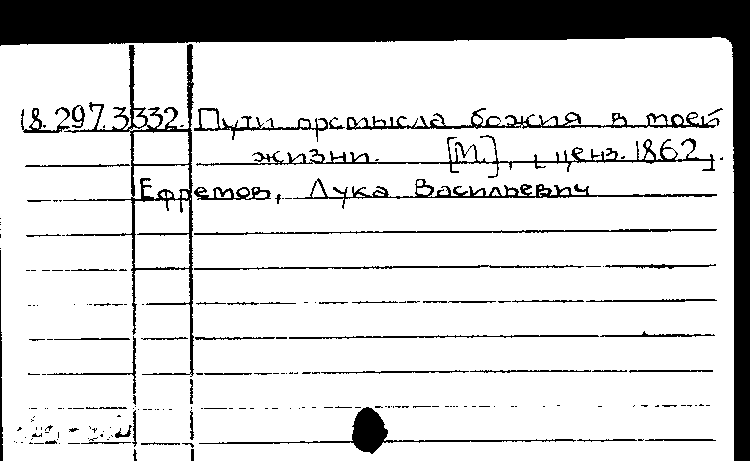 18.297.3332. Пути промысла божия в моей
жизни. [М.], [ценз. 1862].
Ефремов, Лука Васильевич